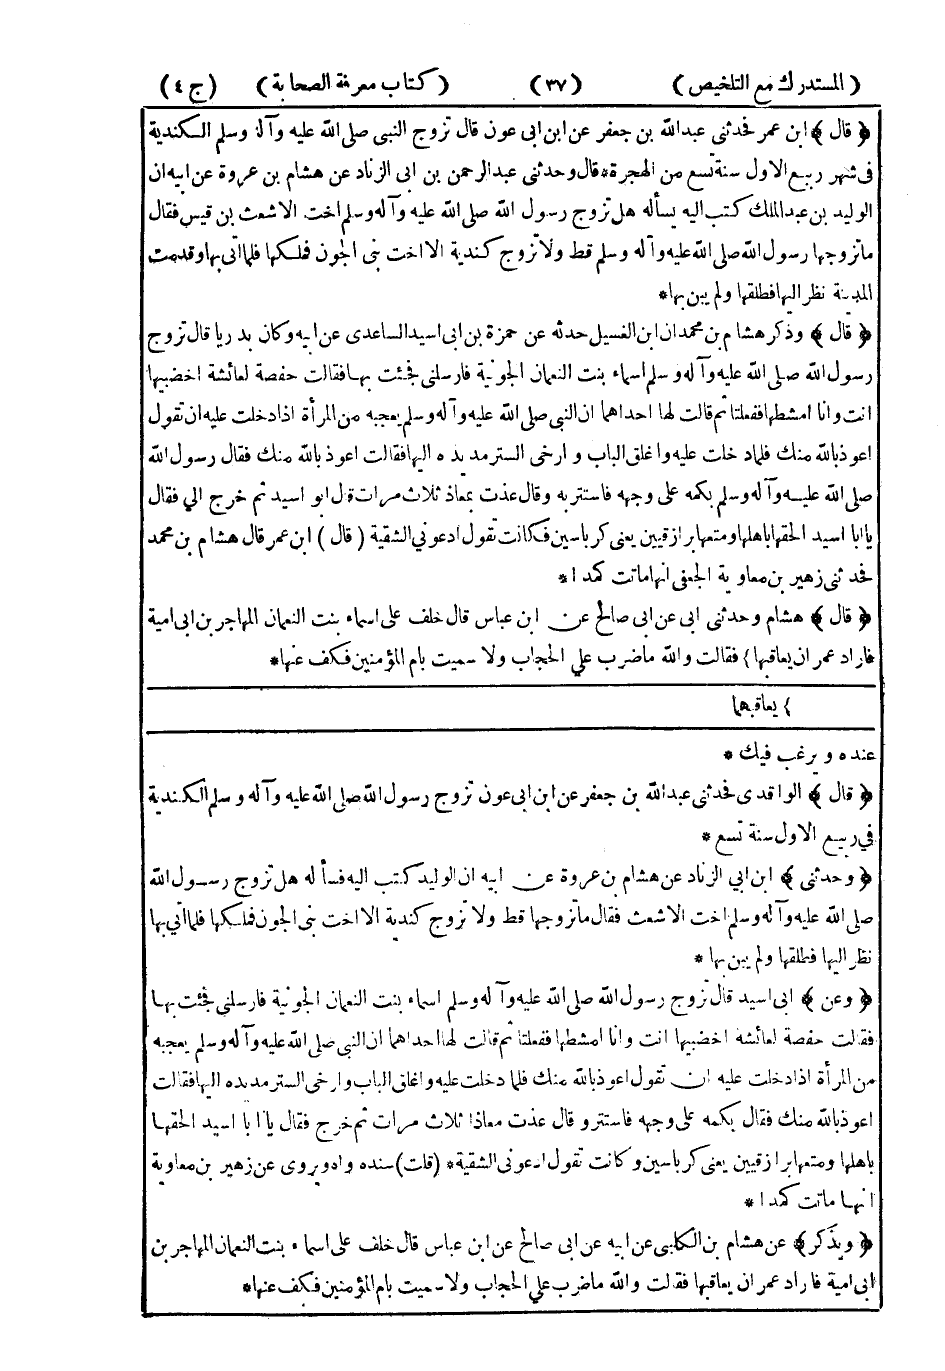 ( المستدرك مع التلخيص ) (٣٧) ( كتاب معرفة الصحابة ) (ج ٤)
﴿ قال ﴾ ابن عمر فحدثنى عبدالله بن جعفر عن ابن ابى عون قال تزوج النبى صلى الله عليه وآله وسلم الكندية
فى شهر ربيع الاول سنة تسع من الهجرة * قال وحدثنى عبدالرحمن بن ابى الزناد عن هشام بن عروة عن ابيه ان
الوليد بن عبدالملك كتب اليه يسأله هل تزوج رسول الله صلى الله عليه وآله وسلم اخت الاشعث بن قيس فقال
ماتزوجها رسول الله صلى الله عليه وآله وسلم قط ولا تزوج كندية الا اخت بنى الجون فملكها فلما اتى بها وقدمت
المدينة نظر اليها فطلقها ولم يبن بها *
﴿ قال ﴾ وذكر هشام بن محمد ان ابن الغسيل حدثه عن حمزة بن ابى اسيد الساعدى عن ابيه وكان بدريا قال تزوج
رسول الله صلى الله عليه وآله وسلم اسماء بنت النعمان الجونية فارسلنى فجئت بها فقالت حفصة لعائشة اخضبيها
انت وانا امشطها ففعلتا ثم قالت لها احداهما ان النبى صلى الله عليه وآله وسلم يعجبه من المرأة اذا دخلت عليه ان تقول
اعوذ بالله منك فلما دخلت عليه واغلق الباب وارخى الستر مد يده اليها فقالت اعوذ بالله منك فقال رسول الله
صلى الله عليه وآله وسلم بكمه على وجهه فاستتر به وقال عذت بمعاذ ثلاث مرات قال ابو اسيد ثم خرج الي فقال
يا ابا اسيد الحقها باهلها ومتعها برازقيين يعنى كرباسين فكانت تقول ادعونى الشقية ( قال ) ابن عمر قال هشام بن محمد
فحدثنى زهير بن معاوية الجعفى انها ماتت كمدا *
﴿ قال ﴾ هشام وحدثنى ابى عن ابى صالح عن ابن عباس قال خلف على اسماء بنت النعمان المهاجر بن ابى امية
فاراد عمر ان يعاقبها } فقالت والله ماضرب علي الحجاب ولا سميت بام المؤمنين فكف عنها *
} يعاقبهما
عنده ويرغب فيك *
﴿ قال ﴾ الواقدى فحدثنى عبدالله بن جعفر عن ابن ابى عون تزوج رسول الله صلى الله عليه وآله وسلم الكندية
في ربيع الاول سنة تسع *
﴿ وحدثنى ﴾ ابن ابي الزناد عن هشام بن عروة عن ابيه ان الوليد كتب اليه فسأله هل تزوج رسول الله
صلى الله عليه وآله وسلم اخت الاشعث فقال ماتزوجها قط ولا تزوج كندية الا اخت بنى الجون فملكها فلما اتي بها
نظر اليها فطلقها ولم يبن بها *
﴿ وعن ﴾ ابى اسيد قال تزوج رسول الله صلى الله عليه وآله وسلم اسماء بنت النعمان الجونية فارسلنى فجئت بها
فقالت حفصة لعائشة اخضبيها انت وانا امشطها ففعلتا ثم قالت لها احداهما ان النبى صلى الله عليه وآله وسلم يعجبه
من المرأة اذا دخلت عليه ان تقول اعوذ بالله منك فلما دخلت عليه واغلق الباب وارخى الستر مد يده اليها فقالت
اعوذ بالله منك فقال بكمه على وجهه فاستتر وقال عذت معاذا ثلاث مرات ثم خرج فقال يا ابا اسيد الحقها
باهلها ومتعها برازقيين يعنى كرباسين وكانت تقول ادعونى الشقية * (قلت) سنده واه ويروى عن زهير بن معاوية
انها ماتت كمدا *
﴿ ويذكر ﴾ عن هشام بن الكلبى عن ابيه عن ابى صالح عن ابن عباس قال خلف على اسماء بنت النعمان المهاجر بن
ابى امية فاراد عمر ان يعاقبها فقالت والله ماضرب علي الحجاب ولا سميت بام المؤمنين فكف عنها *